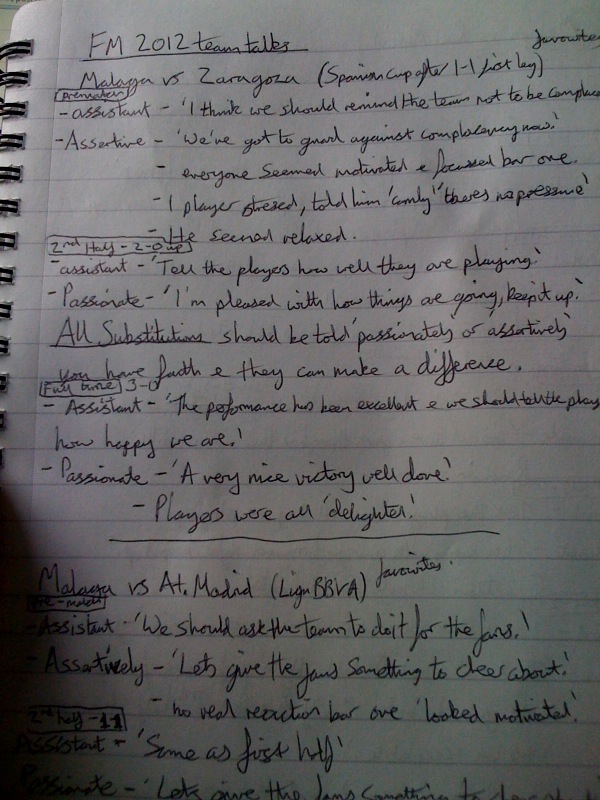 FM 2012 team talks
favourites
Malaga vs Zaragoza (Spanish cup after 1-1 first leg)
Prematch
- assistant - 'I think we should remind the team not to be complace
- Assertive - 'We've got to guard against complacency now.'
- everyone seemed motivated & focussed bar one.
- 1 player stressed, told him 'calmly' 'theres no pressure'
- He seemed relaxed.
2nd Half - 2-0 up
- assistant - 'Tell the players how well they are playing.'
- Passionate - 'I'm pleased with how things are going, keep it up.'
All Substitutions should be told 'passionately or assertively'
you have faith & they can make a difference.
Full time 3-0
- Assistant - 'The performance has been excellent & we should tell the play
how happy we are.'
- Passionate - 'A very nice victory well done.'
- Players were all 'delighted.'
Malaga vs At. Madrid (Liga BBVA) favourites.
Pre-match
- Assistant - 'We should ask the team to do it for the fans.'
- Assertively - 'Lets give the fans something to cheer about.'
- no real reaction bar one 'looked motivated.'
2nd half - 1-1
Assistant - 'Same as first half'
Passionate - 'Lets give the fans something to